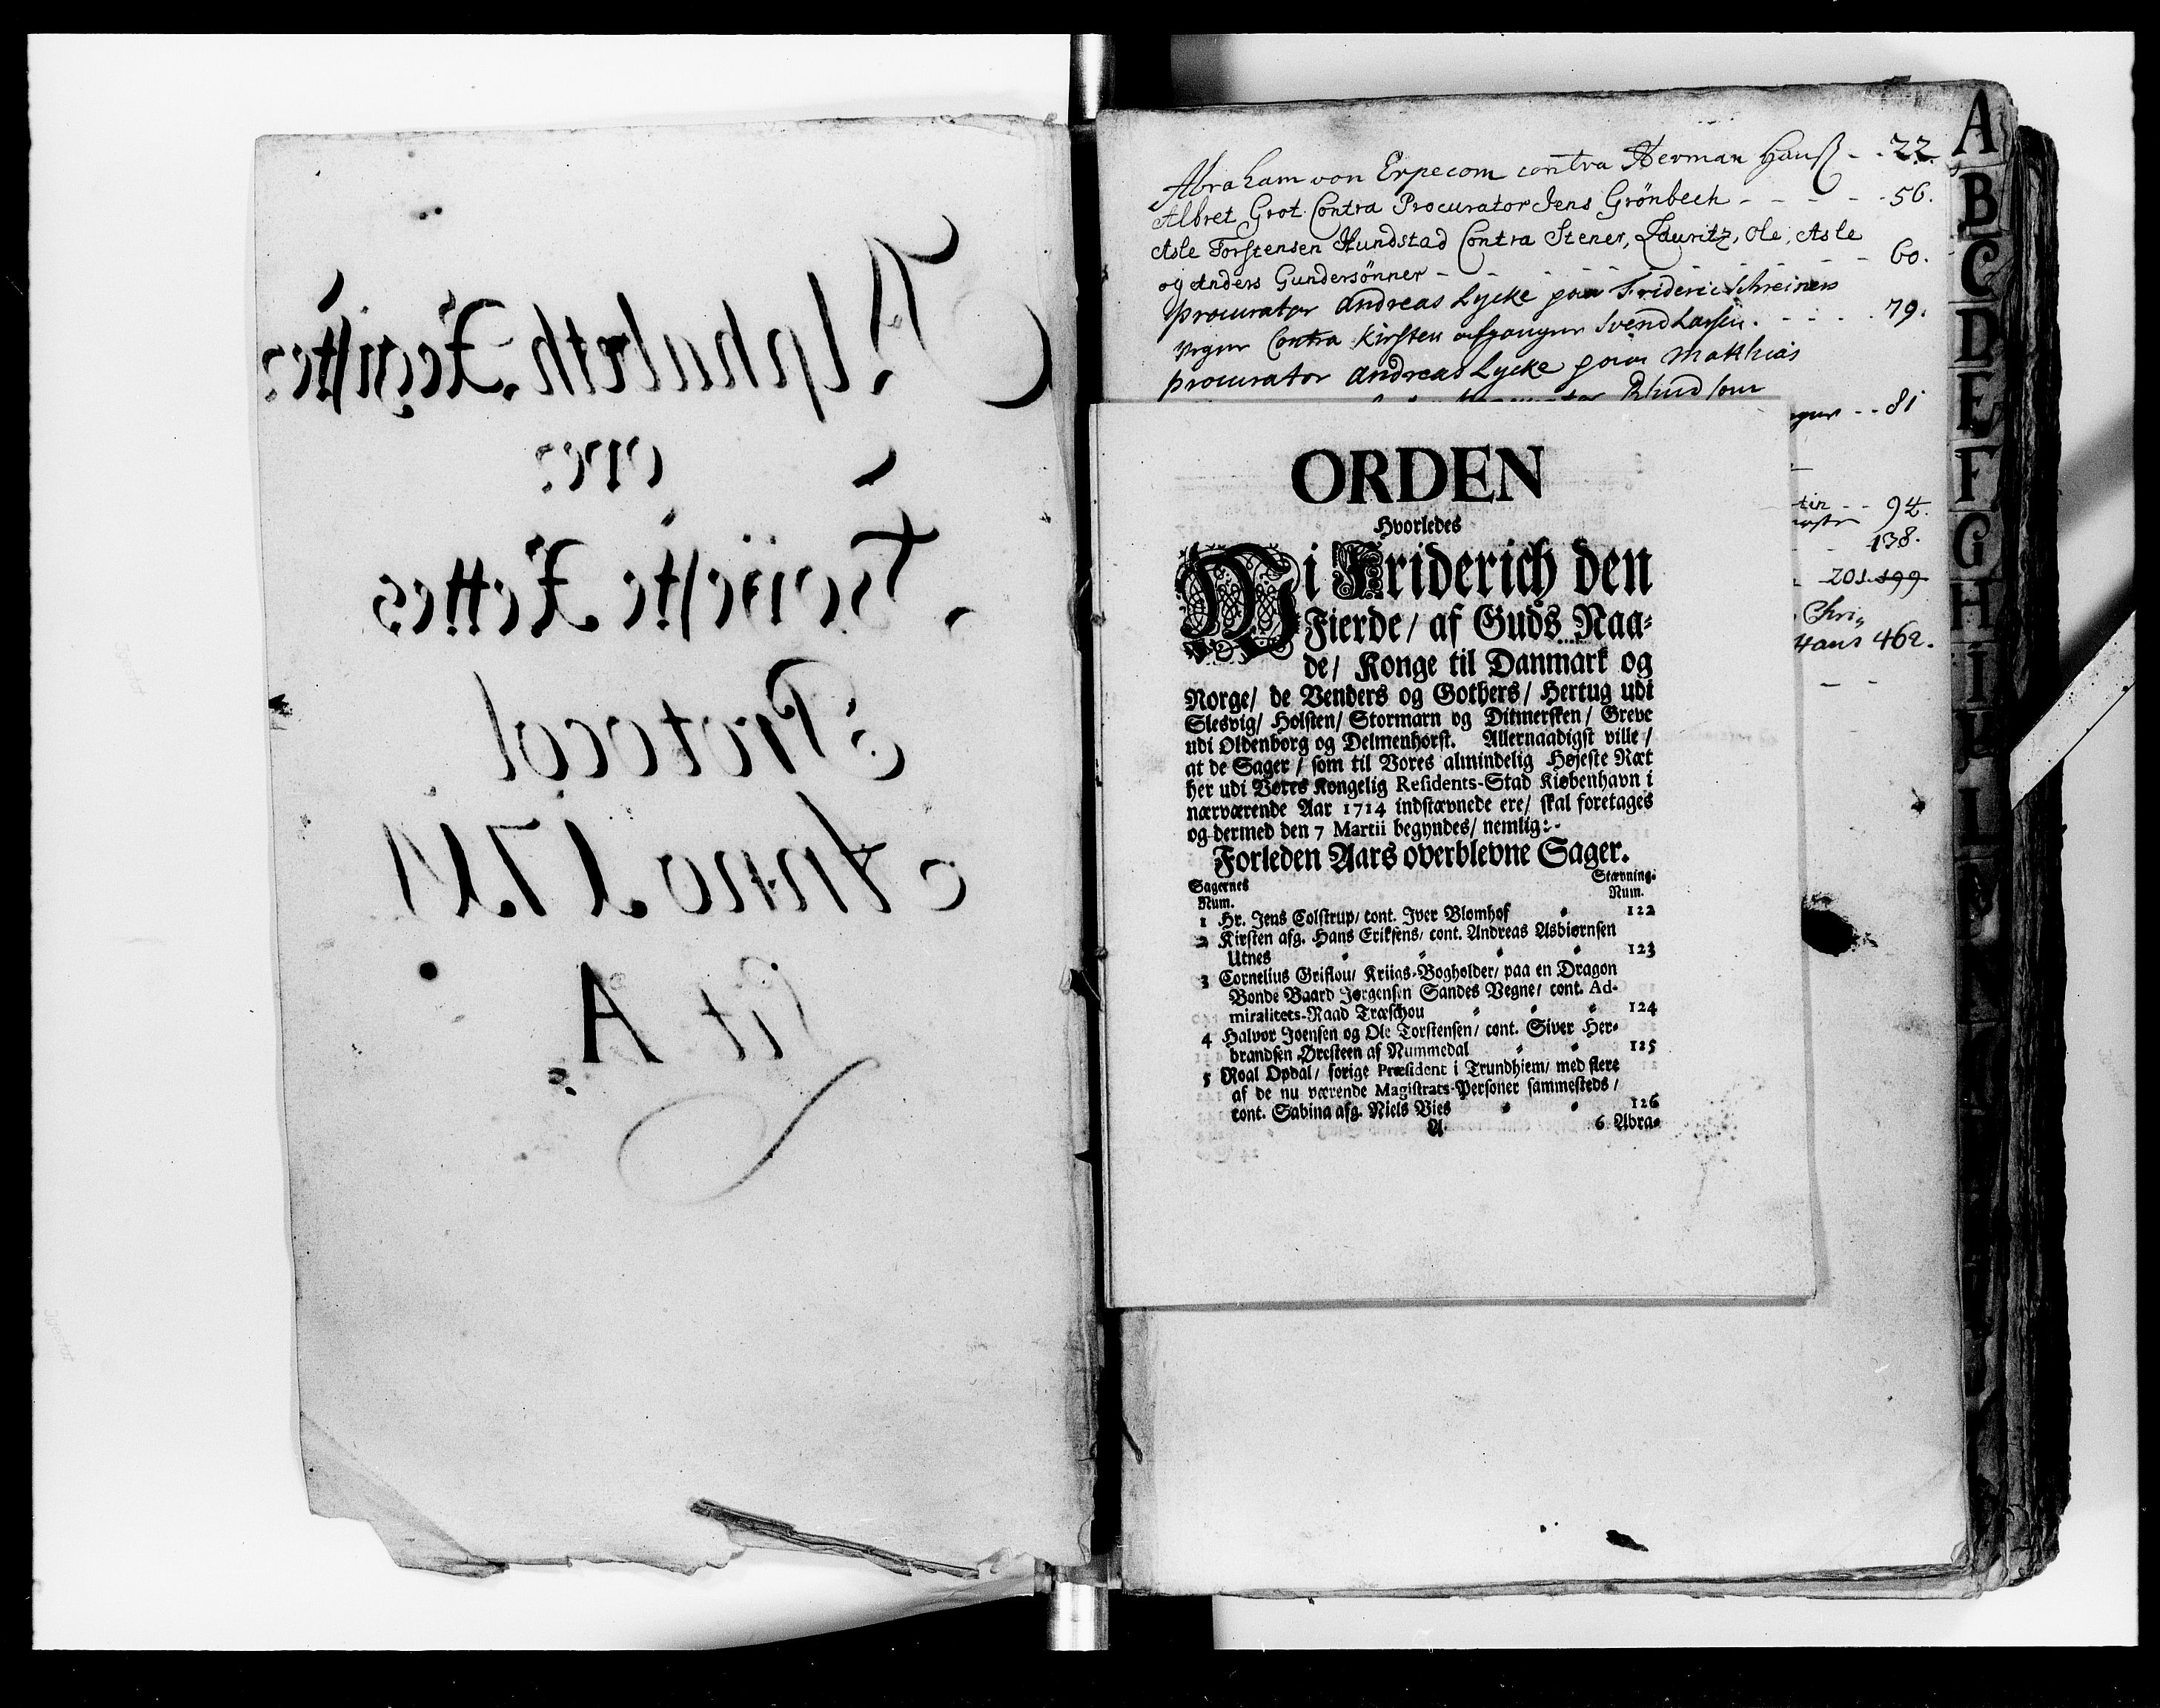 Alphabeth Register
over
Højeste Rettes
Protocol
Anno 1714
Lit A
Abraham von Erpecom contra Herman Hauß - - 22.
Albret Grot Contra Procurator Jens Grönbech - - - - 56.
Asle Torstensen Hundstad Contra Stener, Lauritz, Ole, Asle
og Anders Gundersönner - - - - - - 60.
procurator Andreas Lycke paa Frideric Schreiners
vegne Contra Kirsten afgangne Svend Larsen. - - - - 79.
procurator Andreas Lycke paa Matthias
- - 81
- - 94.
- 138.
201. 199
Chri„
Hans 462.
A
B
C
D
E
F
G
H
I
K
L
ORDEN
Hvorledes
Wi Friderich den
Fierde/ af Guds Naa-
de/ Konge til Danmark og
Norge/ de Venders og Gothers/ Hertug udi
Slesvig/ Holsten/ Stormarn og Ditmersken/ Greve
udi Oldenborg og Delmenhorst. Allernaadigst ville/
at de Sager/ som til Vores almindelig Højeste Ræt
her udi Vores Kongelig Residents-Stad Kiøbenhavn i
nærværende Aar 1714 indstævnede ere/ skal foretages
og dermed den 7 Martii begyndes/ nemlig:
Forleden Aars overblevne Sager.
Sagernes Num. Stævning: Num.
1 Hr. Jens Colstrup/ cont. Iver Blomhof 122
2 Kirsten afg. Hans Eriksens/ cont. Andreas Asbiørnsen
Utnes 123
3 Cornelius Griflou/ Kriigs-Bogholder/ paa en Dragon
Bonde Baard Jørgensen Sandes Vegne/ cont. Ad-
miralitets-Raad Træschou 124
4 Halvor Joensen og Ole Torstensen/ cont. Siver Her-
brandsen Øresteen af Nummedal 125
5 Roal Opdal/ forige Præsident i Trundhiem/ med flere
af de nu værende Magistrats-Personer sammesteds/
cont. Sabina afg. Niels Vies 126
A 6 Abra-